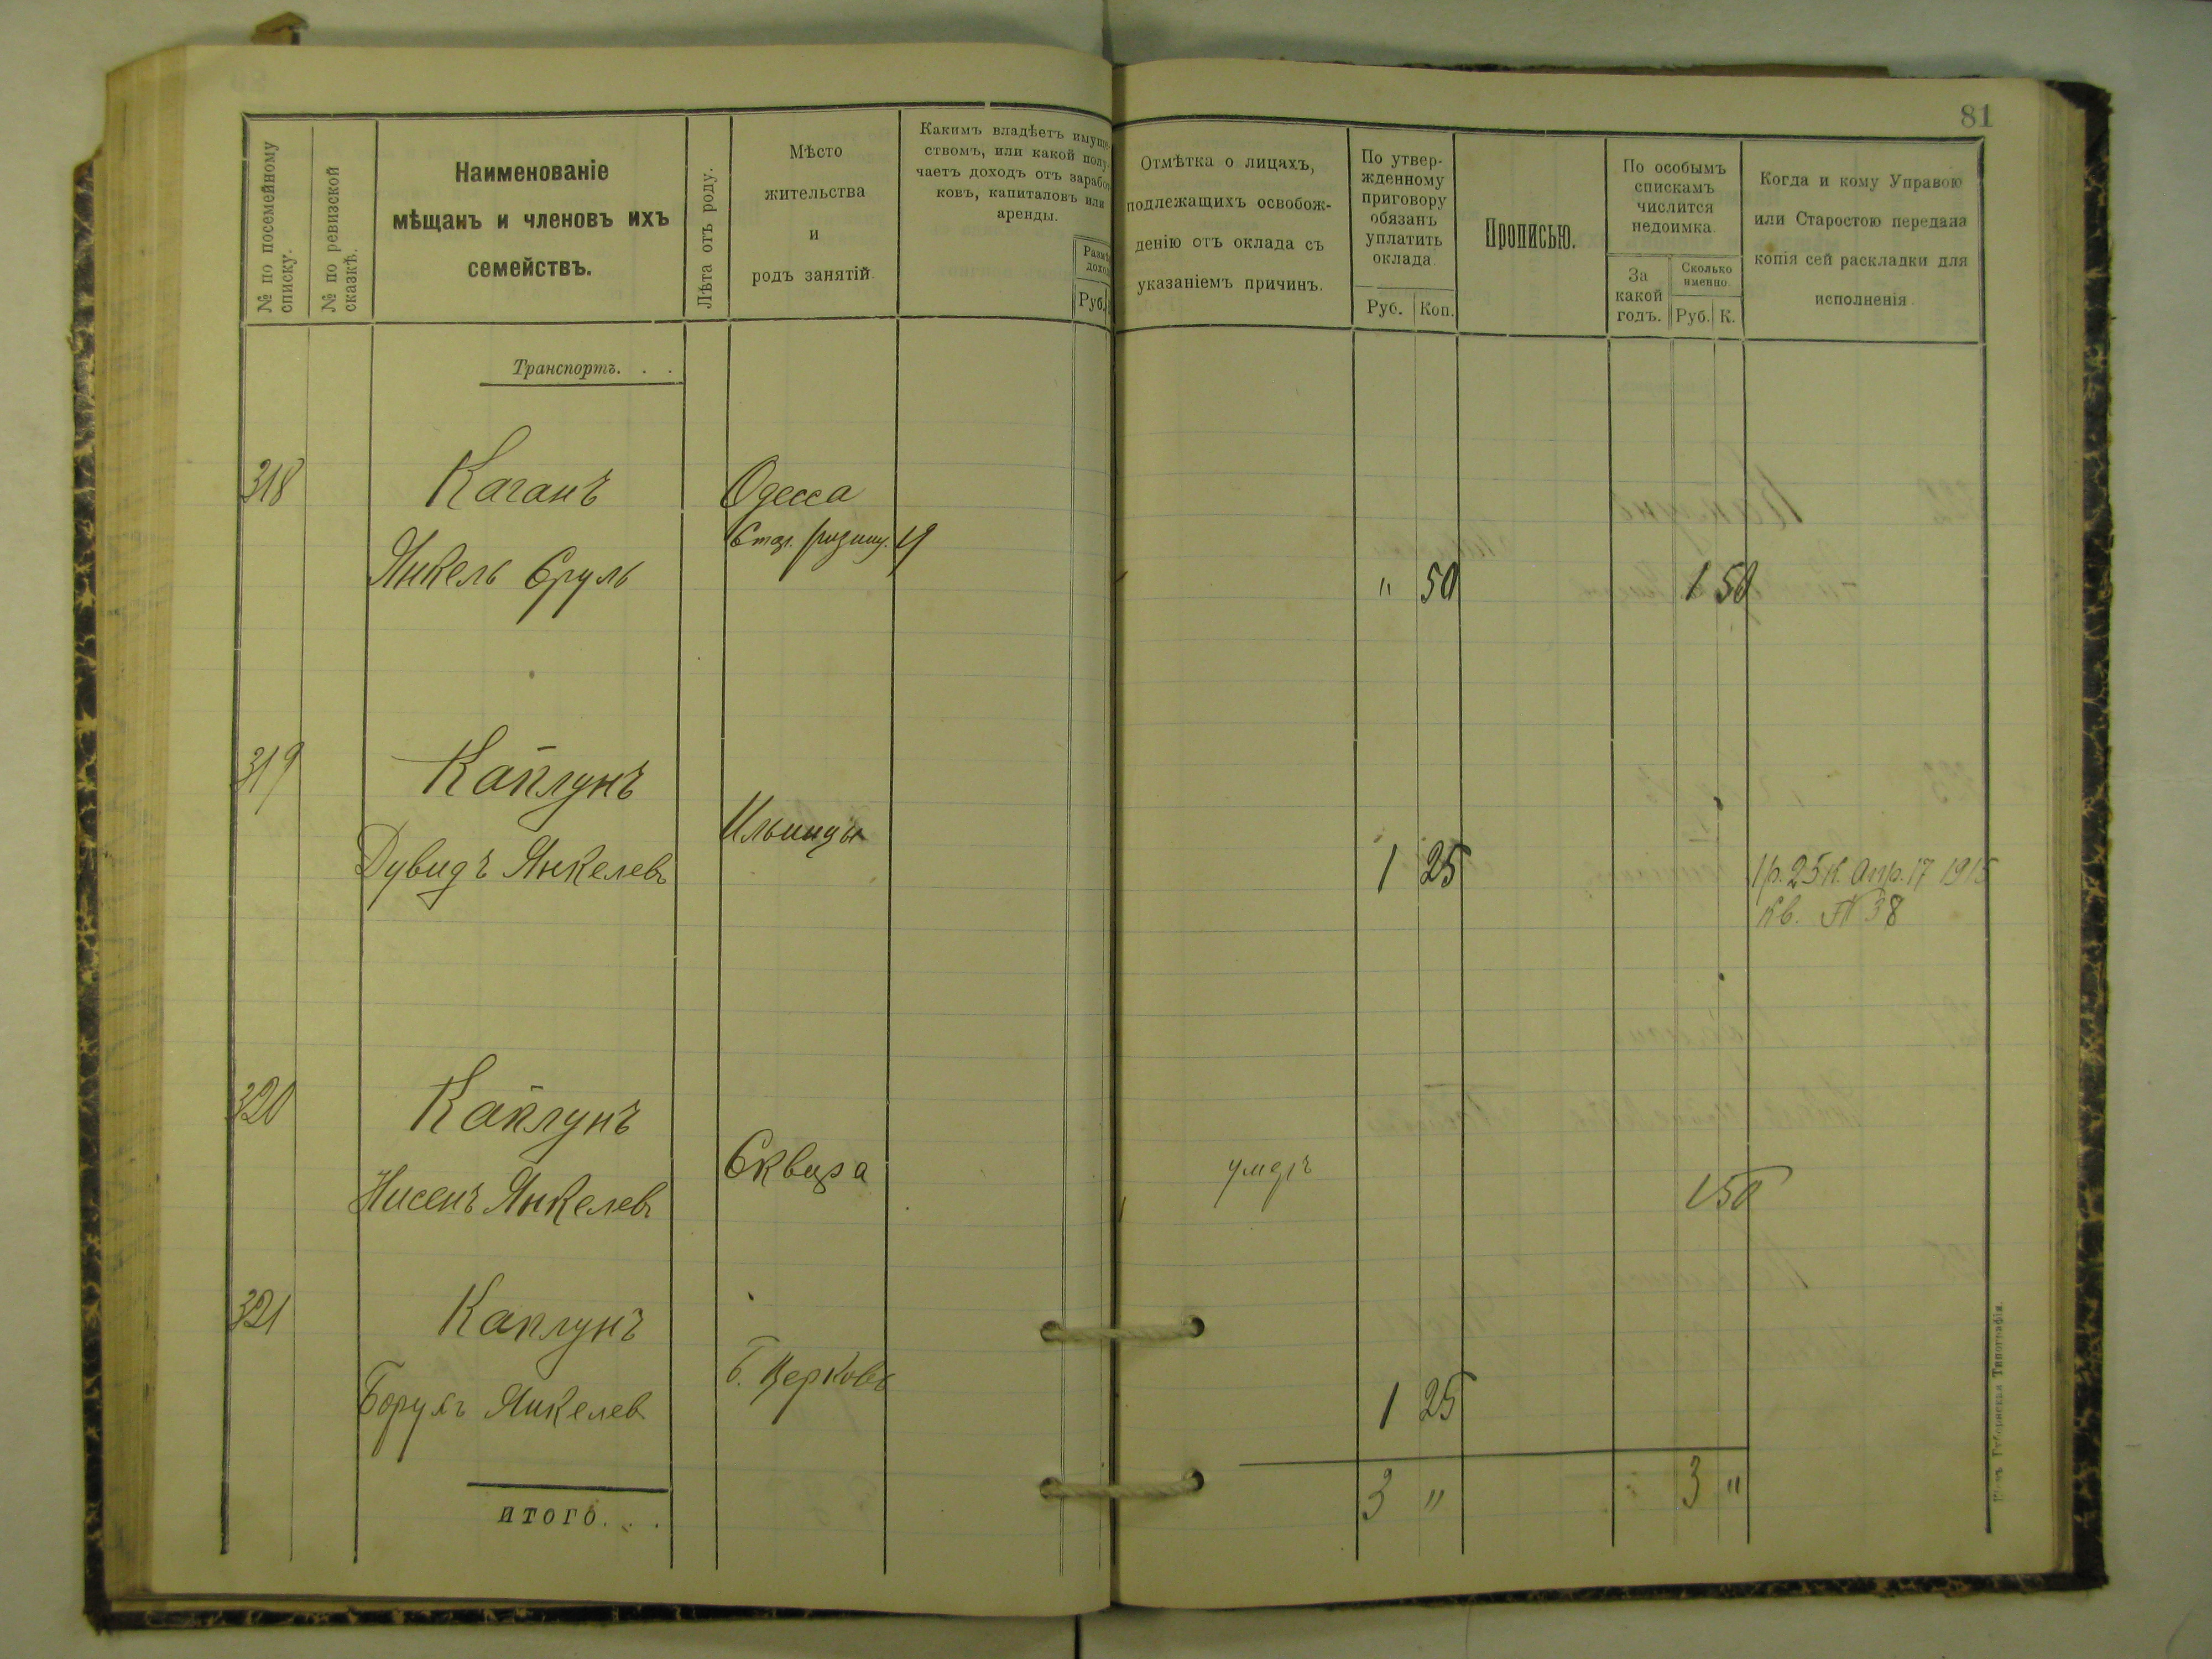 81
№ по посемейному списку.
№ по ревизской сказкѣ.
Наименованіе
мѣщанъ и членовъ ихъ
семействъ.
Лѣта отъ роду.
Мѣсто
жительства
и
родъ занятій.
Какимъ владѣетъ имуще-
ствомъ, или какой полу-
чаетъ доходъ отъ заработ-
ковъ, капиталовъ или
аренды.
Руб.
Отмѣтка о лицахъ,
подлежащихъ освобож-
денію отъ оклада съ
указаніемъ причинъ.
По утвер-
жденному
приговору
обязанъ
уплатить
оклада.
Руб. Коп.
Прописью.
По особымъ
спискамъ
числится
недоимка.
За
какой
годъ.
Сколько
именно.
Руб. К.
Когда и кому Управою
или Старостою передана
копія сей раскладки для
исполненія.
Транспортъ. . .
318 Каганъ Одесса
19
Янкель Сруль " 50 1 50
319 Каплунъ
Ильинцы
Дувидъ Янкелевъ 1 25 1 р. 25 к. Апр. 17 1915
Кв. № 38
320 Каплунъ
Сквира умеръ
Нисенъ Янкелевъ 1 50
321 Каплунъ
Б. Церковь
Борухъ Янкелев 1 25
3 " 3 "
итого. . .
Губернская Типографія.